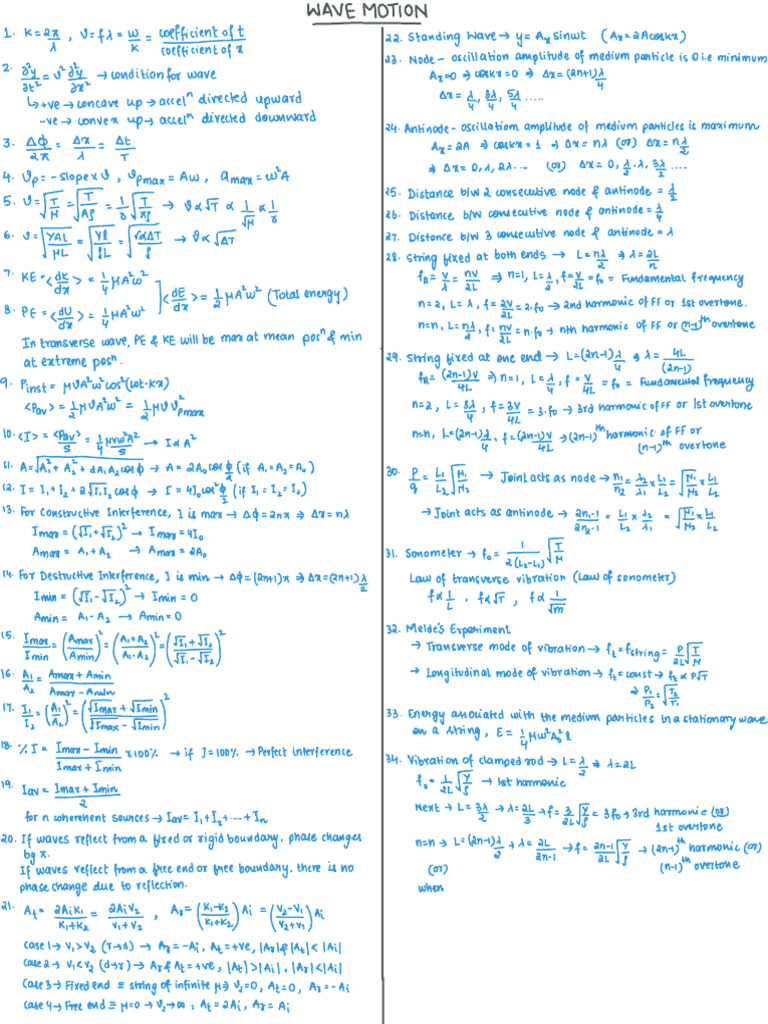 WAVE MOTION
1. K = 2π/λ , v = fλ = ω/K = coefficient of t / coefficient of x
2. ∂²y/∂t² = v² ∂²y/∂x² → condition for wave
↳ +ve → concave up → accelⁿ directed upward
-ve → convex up → accelⁿ directed downward
3. Δϕ/2π = Δx/λ = Δt/T
4. vp = -slope x v , vpmax = Aω , amax = ω²A
5. v = √(T/μ) = √(T/Aρ) = 1/r √(T/πρ) → v α √T α 1/√μ α 1/r
6. v = √(YAL/μL) = √(Yl/ρL) = √(YαΔT/ρ) → v α √ΔT
7. KE = <dK/dx> = 1/4 μA²ω²
8. PE = <dU/dx> = 1/4 μA²ω²
] <dE/dx> = 1/2 μA²ω² (Total energy)
In transverse wave, PE & KE will be max at mean posⁿ & min
at extreme posⁿ.
9. Pinst = μvA²ω²cos²(ωt-kx)
<Pav> = 1/2 μvA²ω² = 1/2 μv v²pmax
10. <I> = <Pav>/S = 1/4 μvω²A²/S → I α A²
11. A = √(A₁² + A₂² + 2A₁A₂cosϕ) → A = 2A₀cosϕ/2 (if A₁=A₂=A₀)
12. I = I₁+I₂+2√I₁I₂cosϕ → I = 4I₀cos²ϕ/2 (if I₁=I₂=I₀)
13. For Constructive Interference, I is max → Δϕ = 2nπ ⇒ Δx = nλ
Imax = (√I₁+√I₂)² → Imax = 4I₀
Amax = A₁+A₂ → Amax = 2A₀
14. For Destructive Interference, I is min → Δϕ = (2n+1)π ⇒ Δx = (2n+1)λ/2
Imin = (√I₁-√I₂)² → Imin = 0
Amin = A₁-A₂ → Amin = 0
15. Imax/Imin = (Amax/Amin)² = (A₁+A₂/A₁-A₂)² = (√I₁+√I₂/√I₁-√I₂)²
16. A₁/A₂ = Amax + Amin / Amax - Amin
17. I₁/I₂ = (A₁/A₂)² = (√Imax + √Imin / √Imax - √Imin)²
18. % I = Imax - Imin / Imax + Imin x100% → if I=100% → Perfect interference
19. Iav = Imax + Imin / 2
for n coherent sources → Iav = I₁+I₂+....+In
20. If waves reflect from a fixed or rigid boundary, phase changes
by π.
If waves reflect from a free end or free boundary, there is no
phase change due to reflection.
21. At = 2AiK₁/K₁+K₂ = 2AiV₂/V₁+V₂ , Ar = (K₁-K₂/K₁+K₂)Ai = (V₂-V₁/V₂+V₁)Ai
Case 1 → V₁>V₂ (r→d) → Ar = -Ai, At = +ve, |Ar|&|At|<|Ai|
Case 2 → V₁<V₂ (d→r) → Ar & At = +ve, |At|>|Ai|, |Ar|<|Ai|
Case 3 → Fixed end ≡ string of infinite μ ⇒ V₂=0, At=0, Ar=-Ai
Case 4 → Free end ≡ μ=0 → V₂→∞, At = 2Ai, Ar = Ai
22. Standing Wave → y = Ax sinωt (Ax = 2Acoskx)
23. Node - oscillation amplitude of medium particle is 0 i.e minimum
Ax=0 ⇒ coskx=0 ⇒ Δx = (2n+1)λ/4
Δx = λ/4, 3λ/4, 5λ/4 .....
24. Antinode - oscillation amplitude of medium particles is maximum
Ax = 2A ⇒ coskx = 1 ⇒ Δx = nλ (or) Δx = nλ/2
⇒ Δx = 0, λ, 2λ.... (or) Δx = 0, λ/2, λ, 3λ/2 ....
25. Distance b/w 2 consecutive node & antinode = λ/2
26. Distance b/w consecutive node & antinode = λ/4
27. Distance b/w 3 consecutive node & antinode = λ
28. String fixed at both ends → L = nλ/2 ⇒ λ = 2L/n
fn = V/λ = nV/2L ⇒ n=1, L=λ/2, f=V/2L = f₀ = Fundamental frequency
n=2, L=λ, f=2V/2L = 2.f₀ → 2nd harmonic of FF or 1st overtone.
n=n, L=nλ/2, f=nV/2L = n.f₀ → nth harmonic of FF or (n-1)th overtone
29. String fixed at one end → L = (2n-1)λ/4 ⇒ λ = 4L/(2n-1)
fn = (2n-1)V/4L ⇒ n=1, L=λ/4, f=V/4L = f₀ = Fundamental frequency
n=2, L=3λ/4, f=3V/4L = 3.f₀ → 3rd harmonic of FF or 1st overtone
n=n, L=(2n-1)λ/4, f=(2n-1)V/4L → (2n-1)th harmonic of FF or
(n-1)th overtone
30. P/q = L₁/L₂ √(μ₁/μ₂) → Joint acts as node → n₁/n₂ = λ₂/λ₁ x L₁/L₂ = √(μ₁/μ₂) x L₁/L₂
→ Joint acts as antinode → 2n₁-1/2n₂-1 = L₁/L₂ x λ₂/λ₁ = √(μ₁/μ₂) x L₁/L₂
31. Sonometer → f₀ = 1/2(L₂-L₁) √(T/μ)
Law of transverse vibration (Law of sonometer)
f α 1/L , f α √T , f α 1/√m
32. Melde's Experiment
→ Transverse mode of vibration → ft = fstring = P/2L √(T/μ)
→ Longitudinal mode of vibration → ft = const → ft α P√T
⇒ P₁/P₂ = √(T₂/T₁)
33. Energy associated with the medium particles in a stationary wave
on a string, E = 1/4 μω²A₀²l
34. Vibration of clamped rod → L = λ/2 ⇒ λ = 2L
f₀ = 1/2L √(Y/ρ) → 1st harmonic
Next → L = 3λ/2 → λ = 2L/3 → f = 3/2L √(Y/ρ) = 3f₀ → 3rd harmonic (or)
1st overtone
n=n → L = (2n-1)λ/2 → λ = 2L/2n-1 → f = 2n-1/2L √(Y/ρ) → (2n-1)th harmonic (or)
(n-1)th overtone
(or)
when